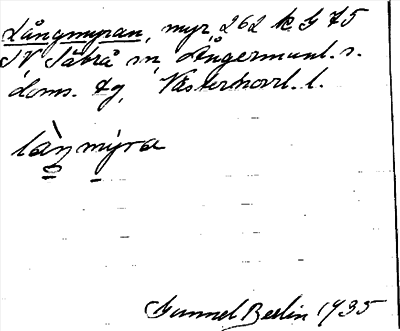 Långmyran, myr, 262 k G 75
SV Säbrå sn, Ångermanl. s.
doms. tg, Västernorrl. l.
låŋmýra
Gunnel Beelin 1935